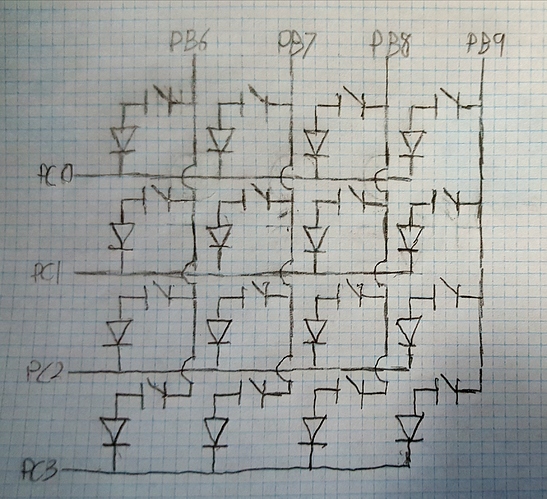 PB6 PB7 PB8 PB9
PC0
PC1
PC2
PC3